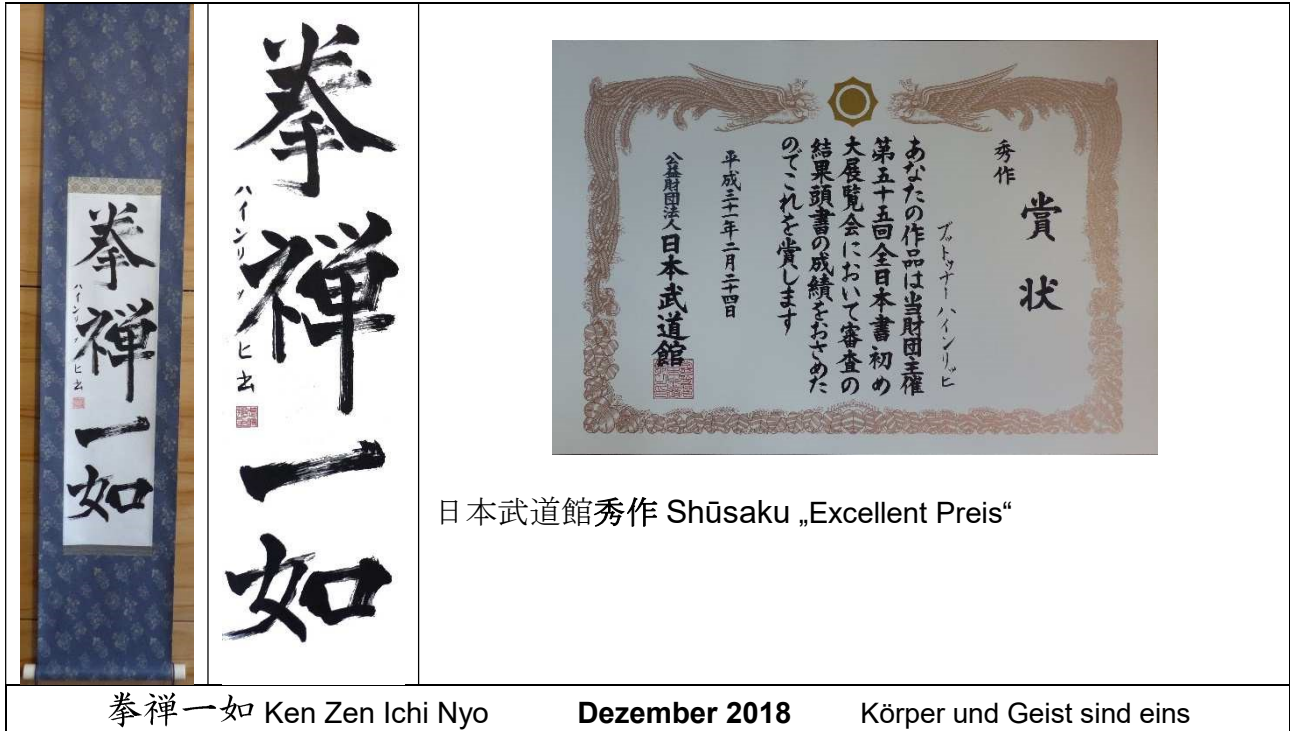 拳禅一如
ハインリッヒ
拳禅一如
ハインリッヒ
賞状
秀作
ブットゥナー ハインリッヒ
あなたの作品は当財団主催
第五十五回全日本書初め
大展覧会において審査の
結果頭書の成績をおさめた
のでこれを賞します
平成三十一年二月二十四日
公益財団法人日本武道館
日本武道館秀作 Shūsaku „Excellent Preis“
拳禅一如 Ken Zen Ichi Nyo Dezember 2018 Körper und Geist sind eins